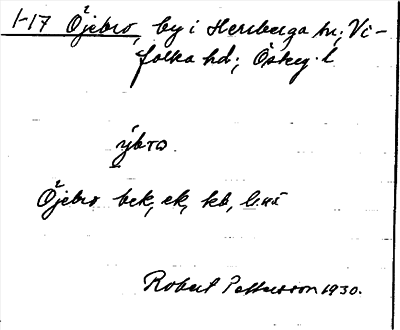 1-17 Öjebro, by i Herrberga sn; Vi-
folka hd; Österg. l
ýbrω
Öjebro bek, ek, kb,
Robert Pettersson 1930.